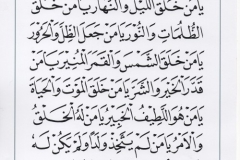 يَا مَنْ خَلَقَ اللَّيْلَ وَالنَّهَارَ يَا مَنْ خَلَقَ
الظُّلُمَاتِ وَالنُّورَ يَا مَنْ جَعَلَ الظِّلَّ وَالْحَرُورَ
يَا مَنْ خَلَقَ الشَّمْسَ وَالْقَمَرَ الْمُنِيرَ يَا مَنْ
قَدَّرَ الْخَيْرَ وَالشَّرَّ يَا مَنْ خَلَقَ الْمَوْتَ وَالْحَيَاةَ
يَا مَنْ هُوَ اللَّطِيفُ الْخَبِيرُ يَا مَنْ لَهُ الْخَلْقُ
وَالْأَمْرُ يَا مَنْ لَمْ يَتَّخِذْ وَلَدًا وَلَمْ يَكُنْ لَهُ